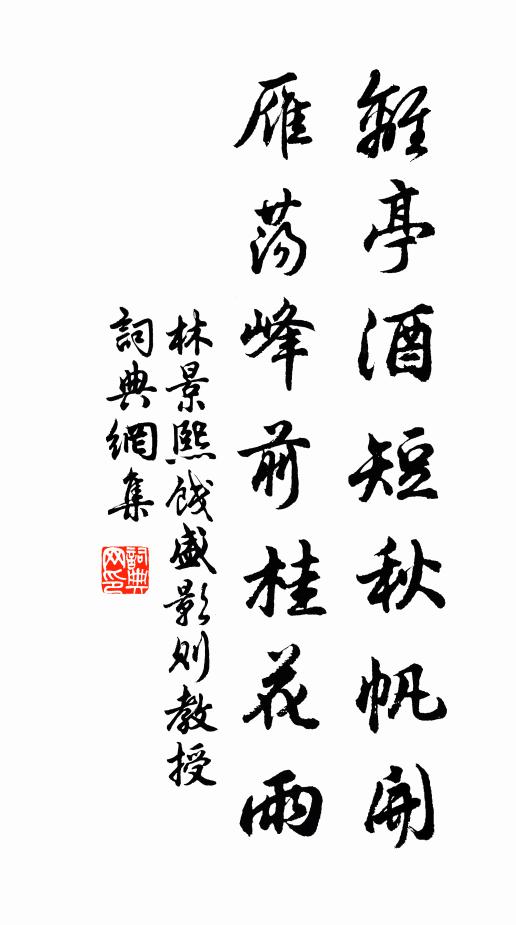 離亭酒短秋帆開
雁蕩峰前桂花雨
林景熙餞盛影則教授
詞典網集
詞典网印